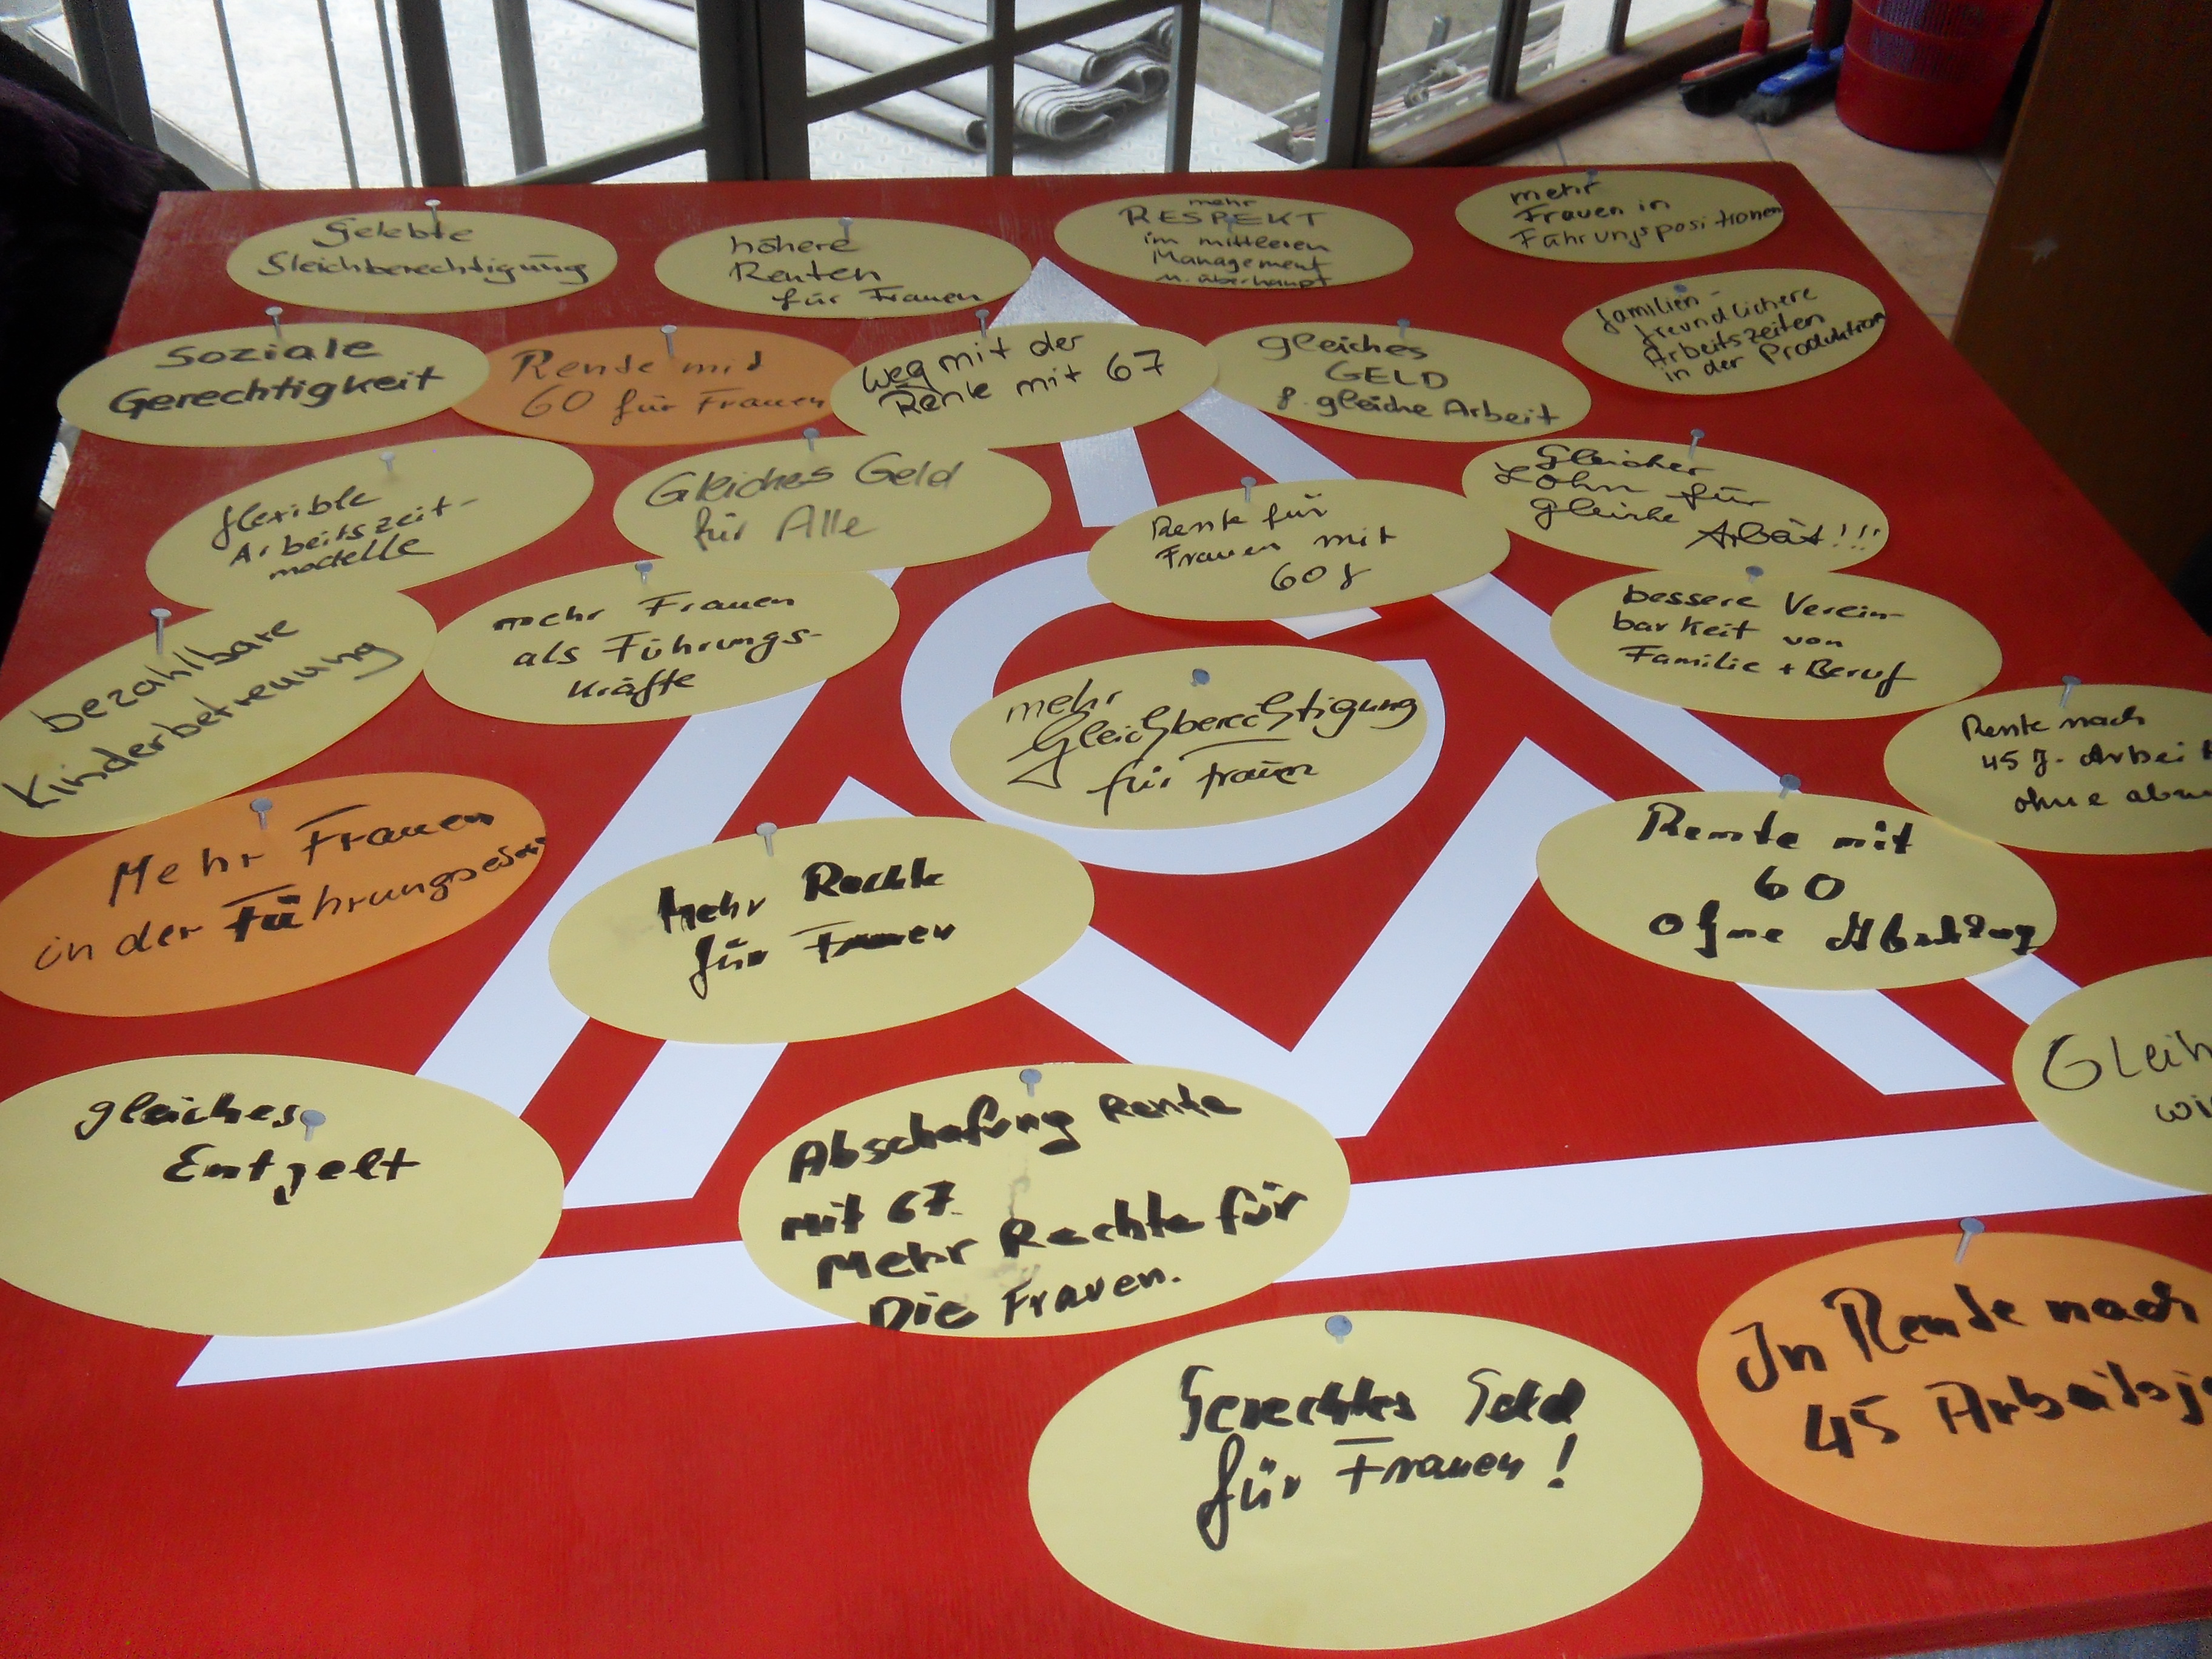 Gelebte
Gleichberechtigung
höhere
Renten
für Frauen
mehr
RESPEKT
im mittleren
Management
u. überhaupt
mehr
Frauen in
Führungspositionen
familien-
freundlichere
Arbeitszeiten
in der Produktion
Soziale
Gerechtigkeit
Rente mit
60 für Frauen
weg mit der
Rente mit 67
gleiches
GELD
f. gleiche Arbeit
flexible
Arbeitszeit-
modelle
Gleiches Geld
für Alle
Rente für
Frauen mit
60 J
Gleicher
Lohn für
gleiche Arbeit!!!
bezahlbare
Kinderbetreuung
mehr Frauen
als Führungs-
kräfte
mehr
Gleichberechtigung
für Frauen
bessere Verein-
barkeit von
Familie + Beruf
Rente nach
45 J. Arbeit
ohne
Mehr Frauen
in der
Mehr Rechte
für Frauen
Rente mit
60
ohne
gleiches
Entgelt
Abschafung Rente
mit 67.
Mehr Rechte für
Die Frauen.
Gleih
wi
Gerechtes Geld
für Frauen!
In Rente nach
45 Arbeitsj